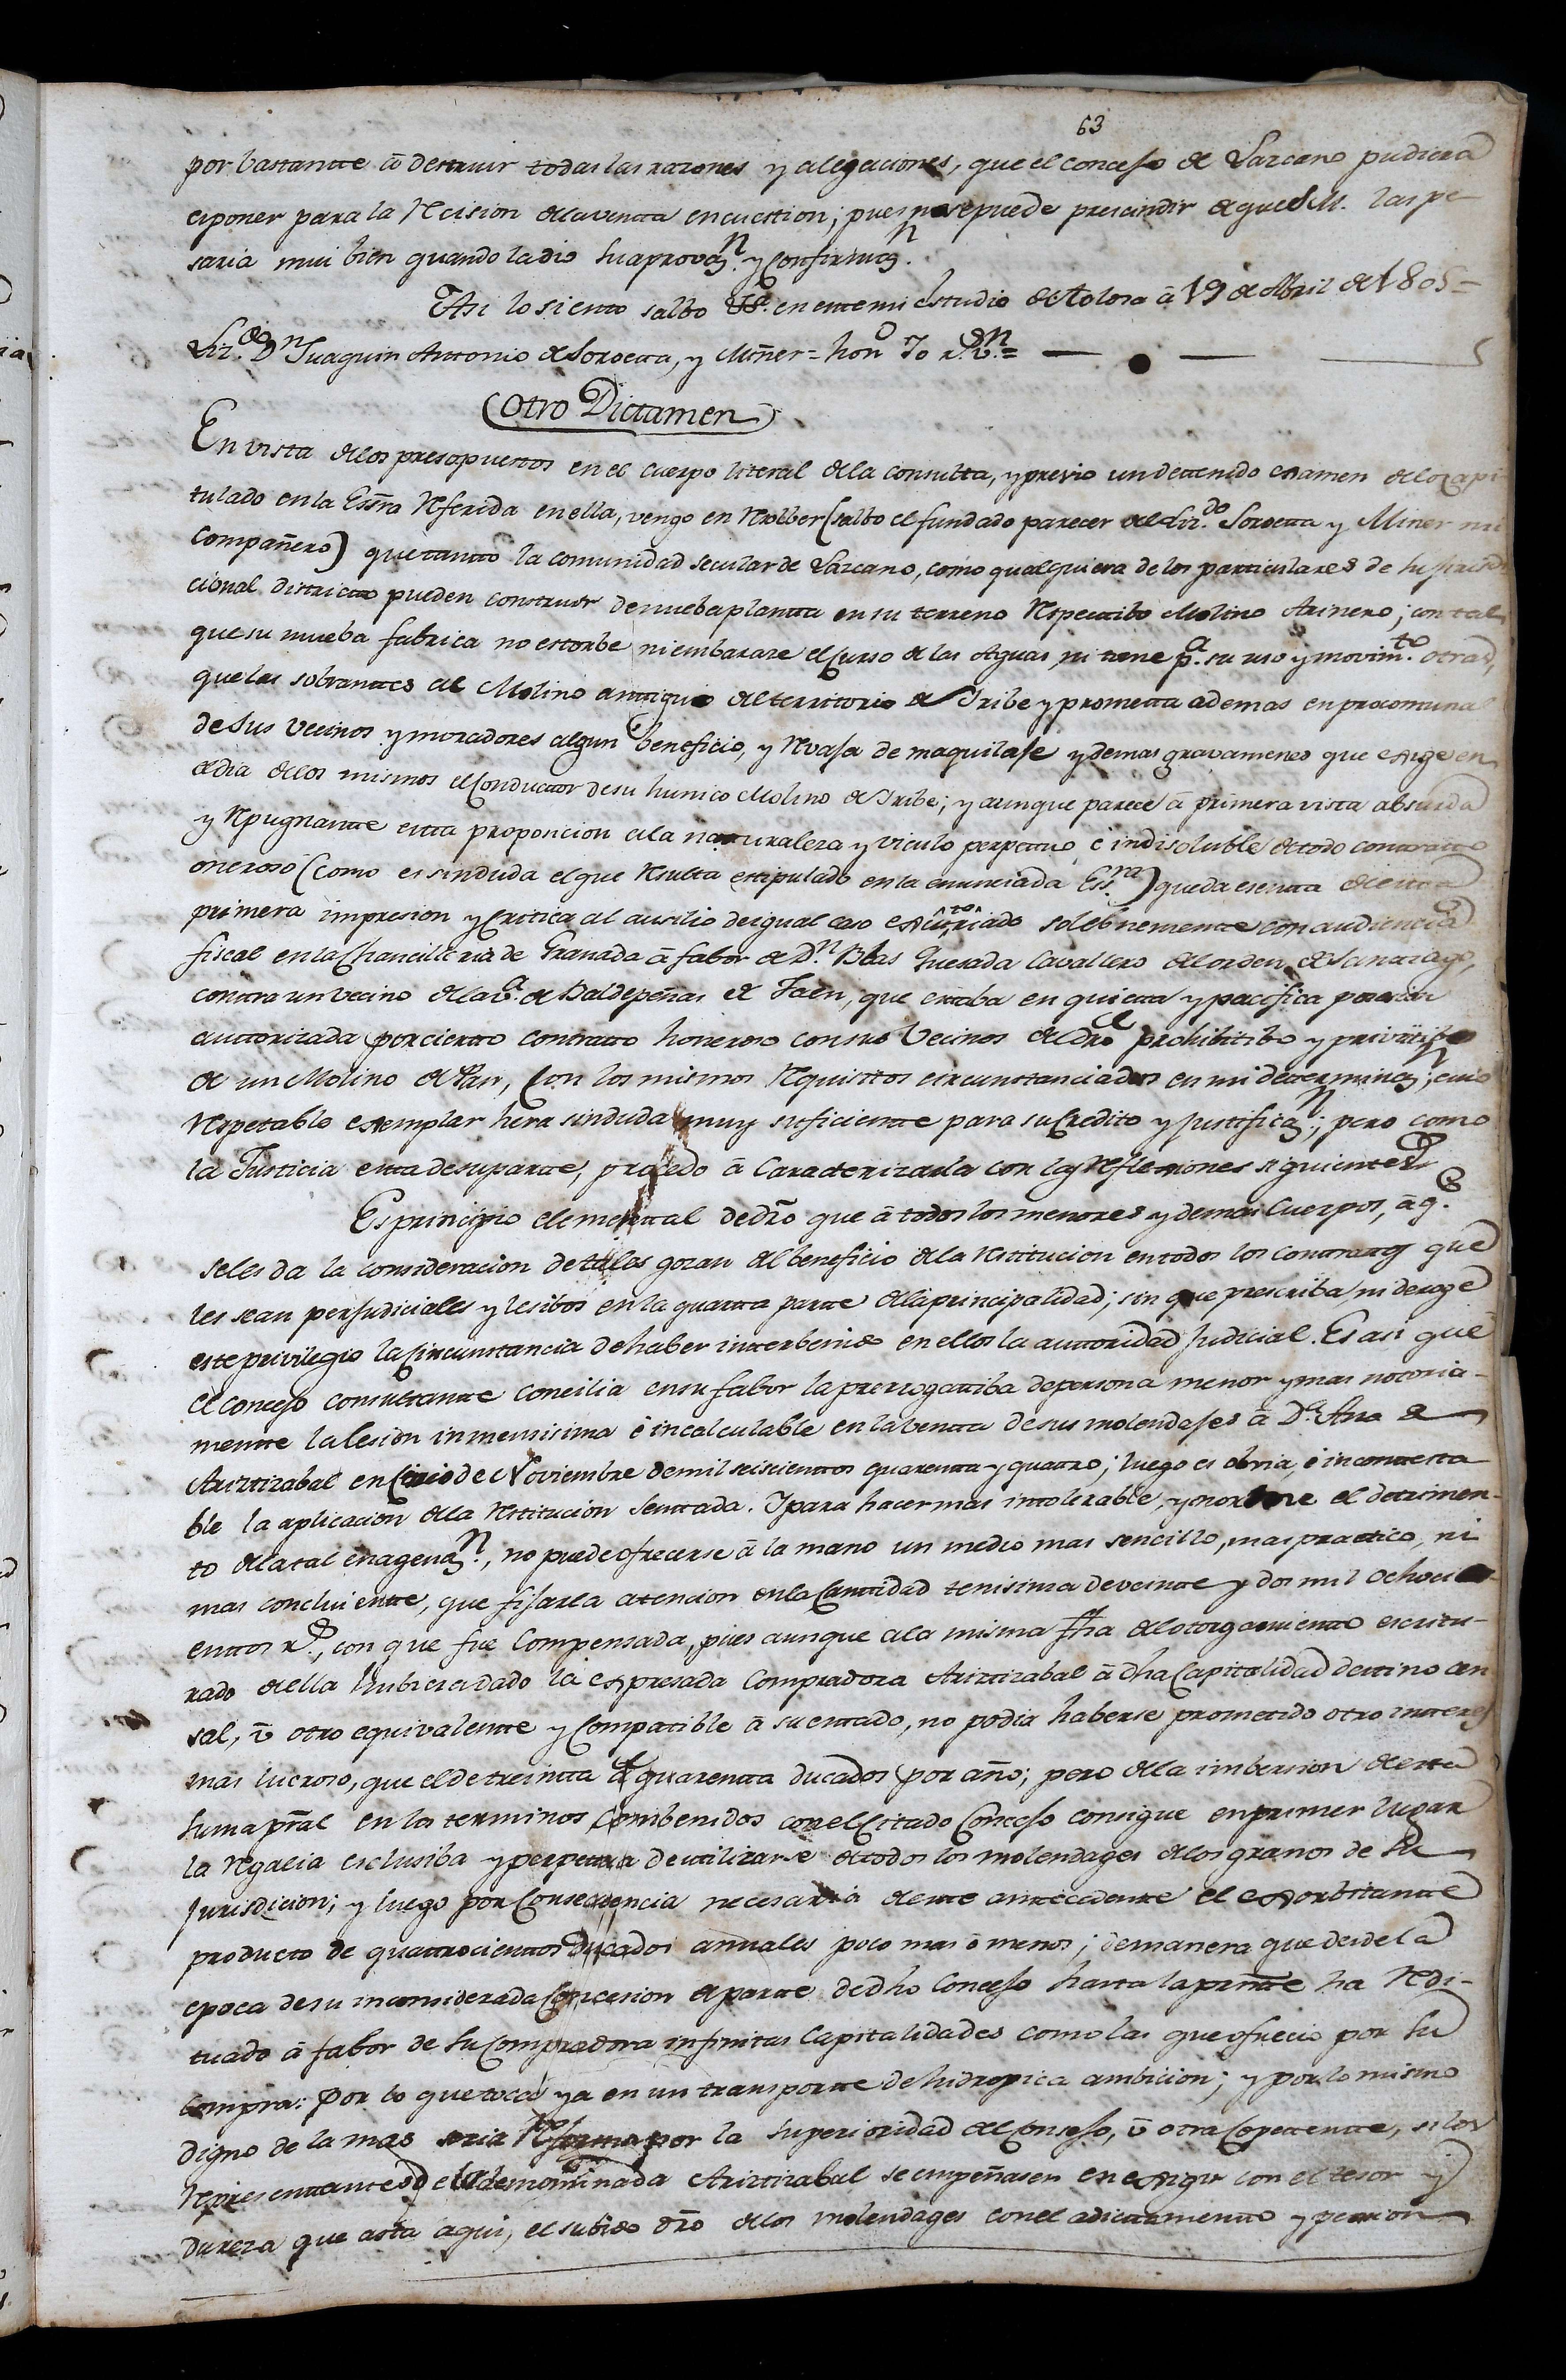 63
por bastantte â desttruir todas las razones y alegaciones, que el concejo de Lazcano pudiera
esponer para la Recision de la ventta en cuesttion; pues no se puede prescindir de que S.M. las pe-
saria mui bien quando la dio su aprovaz.n y confirmaz.n
Asi lo sientto salbo &.a en estte mi esttudio de Tolosa â 19 de Abril de 1805=
Liz.do D.n Juaquin Anttonio de Soroetta, y Miñer = hon.o 70 r.s v.n =
Otro Dictamen
En vista de los presupuesttos en el cuerpo literal de la consultta, y previo un dettenido examen de lo capi-
tulado en la Essra Referida en ella, vengo en Resolber (salbo el fundado parecer del Liz.do Soroetta y Miner mi
Compañero) que tantto la comunidad secular de Lazcano, como qualquiera de los particulares de su jurisdi-
cional districtto pueden construir de nueba plantta en su terreno Respecttibo Molino Arinero; con tal
que su nueba fabrica no estorbe ni embaraze el Curso de las Aguas ni tiene p.a su uso y movim.to otras,
que las sobranttes del Molino anttiguo del territtorio de Yribe y prometta ademas en procomunal
de sus vecinos y moradores algun beneficio, y Revaja de maquilaje y demas gravamenes que exige en
el dia de los mismos el Conducttor de su hunico Molino de Yribe; y aunque parece â primera vista absurda
y Repugnantte estta proposicion a la natturaleza y viculo perpettuo, e indisoluble de todo conttratto
oneroso (como es sin duda el que Resultta estipulado en la enunciada Ess.ra) queda esentta de estta
primera impresion y Critica al ausilio de igual caso executtoriado solebnementte con audiencia
fiscal en la Chancilleria de Granada â fabor de D.n Blas Quesada Cavallero del orden de Santiago,
contra un vecino de la v.a de Baldepeñas de Jaen, que esttaba en quietta y pacifica posesion
auttorizada por ciertto contratto honeroso con sus Vecinos del dro prohibitibo y privatibo
de un Molino de Pan, con los mismos Requisitos circunstanciados en mi determinaz.n; cuio
Respetable exemplar hera sin duda muy suficientte para su Credito y justificaz.n; pero como
la Justicia esta de su partte, procedo â Caracterizarla con las Reflexiones siguienttes
Es principio elementtal de dro que â todos los menores y demas Cuerpos, â q.e
se les da la consideracion de tales gozan del beneficio de la Restitucion en todos los contrattos que
les sean perjudiciales y lesibos en la quartta partte de la principalidad; sin que prescriba, ni deroge
este privilegio la Circunstancia de haber intterbenido en ellos la auttoridad Judicial. Es asi que
el concejo consulttante concilia en su fabor la prerrogattiba de persona menor y mas nottoria-
mentte la lesion inmensisima e incalculable en la bentta de sus molendajes â D.a Ana de
Ariztizabal en Cinco de Noviembre de mil seiscienttos quarentta y quatro; luego es obvia, e inconttesta-
ble la aplicacion de la Restitucion senttada. Y para hacer mas intolerable, y norme el detrimen-
to de la tal enagenaz.n, no puede ofrecerse â la mano un medio mas sencillo, mas practico, ni
mas concluientte, que fijar la atencion en la Canttidad tenisima de veintte y dos mil ochoci-
enttos r.s, con que fue Compensada, pues aunque a la misma fha del otorgamientto escritu-
rado de ella hubiera dado la expresada Compradora Ariztizabal â dha Capitalidad desttino cen-
sal, û otro equivalentte y Compatible â su esttado, no podia haberse prometido otro intteres
mas lucroso, que el de treintta â quarentta ducados por año; pero de la imbersion de estta
suma pral en los terminos Combenidos con el Citado Concejo consigue en primer lugar
la Regalia esclusiba y perpettua de utilizarse de todos los molendages de los granos de su
jurisdicion; y luego por Consecuencia necesaria de estte anttecedentte el exorbitantte
producto de quattrocienttos Ducados annuales poco mas o menos; de manera que desde la
epoca de su inconsiderada Concesion de partte de dho Concejo hasta la prntte ha Redi-
tuado â fabor de su Compradora infinitas Capitalidades como las que ofrecio por su
Compra: Por lo que toca ya en un transportte de hidropica ambicion; y por lo mismo
digno de la mas seria Reforma por la superioridad del Consejo, û otra Copetentte, si los
Representanttes de la denominada Ariztizabal se empeñasen en exigir con el teson y
dureza que asta aqui, el subido dro de los molendages con el adittamentto y pension